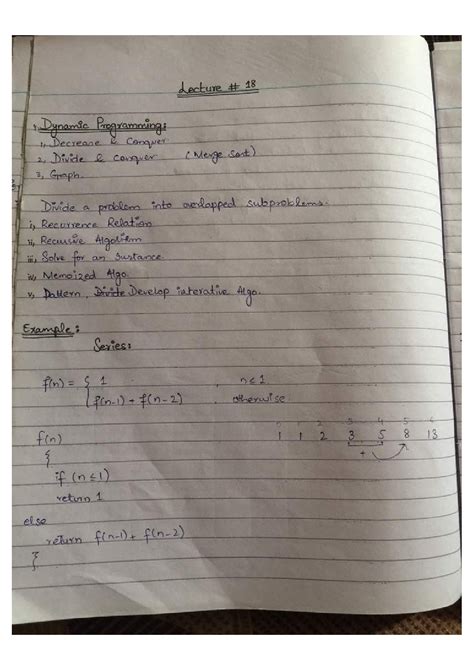 Lecture # 18
Dynamic Programming:
1, Decrease & Conquer
2, Divide & conquer (Merge Sort)
3, Graph.
Divide a problem into overlapped subproblems.
i, Recurrence Relation
ii, Recursive Algotirm
iii, Solve for an Sustance
iv, Memoized Algo.
v, Pattern, Divide Develop interative Algo.
Example:
Series:
f(n) = { 1 , n≤1
f(n-1) + f(n-2) , otherwise
1 1 2 3 5 8 13
+
f(n)
{
if (n ≤ 1)
return 1
else
return f(n-1) + f(n-2)
}